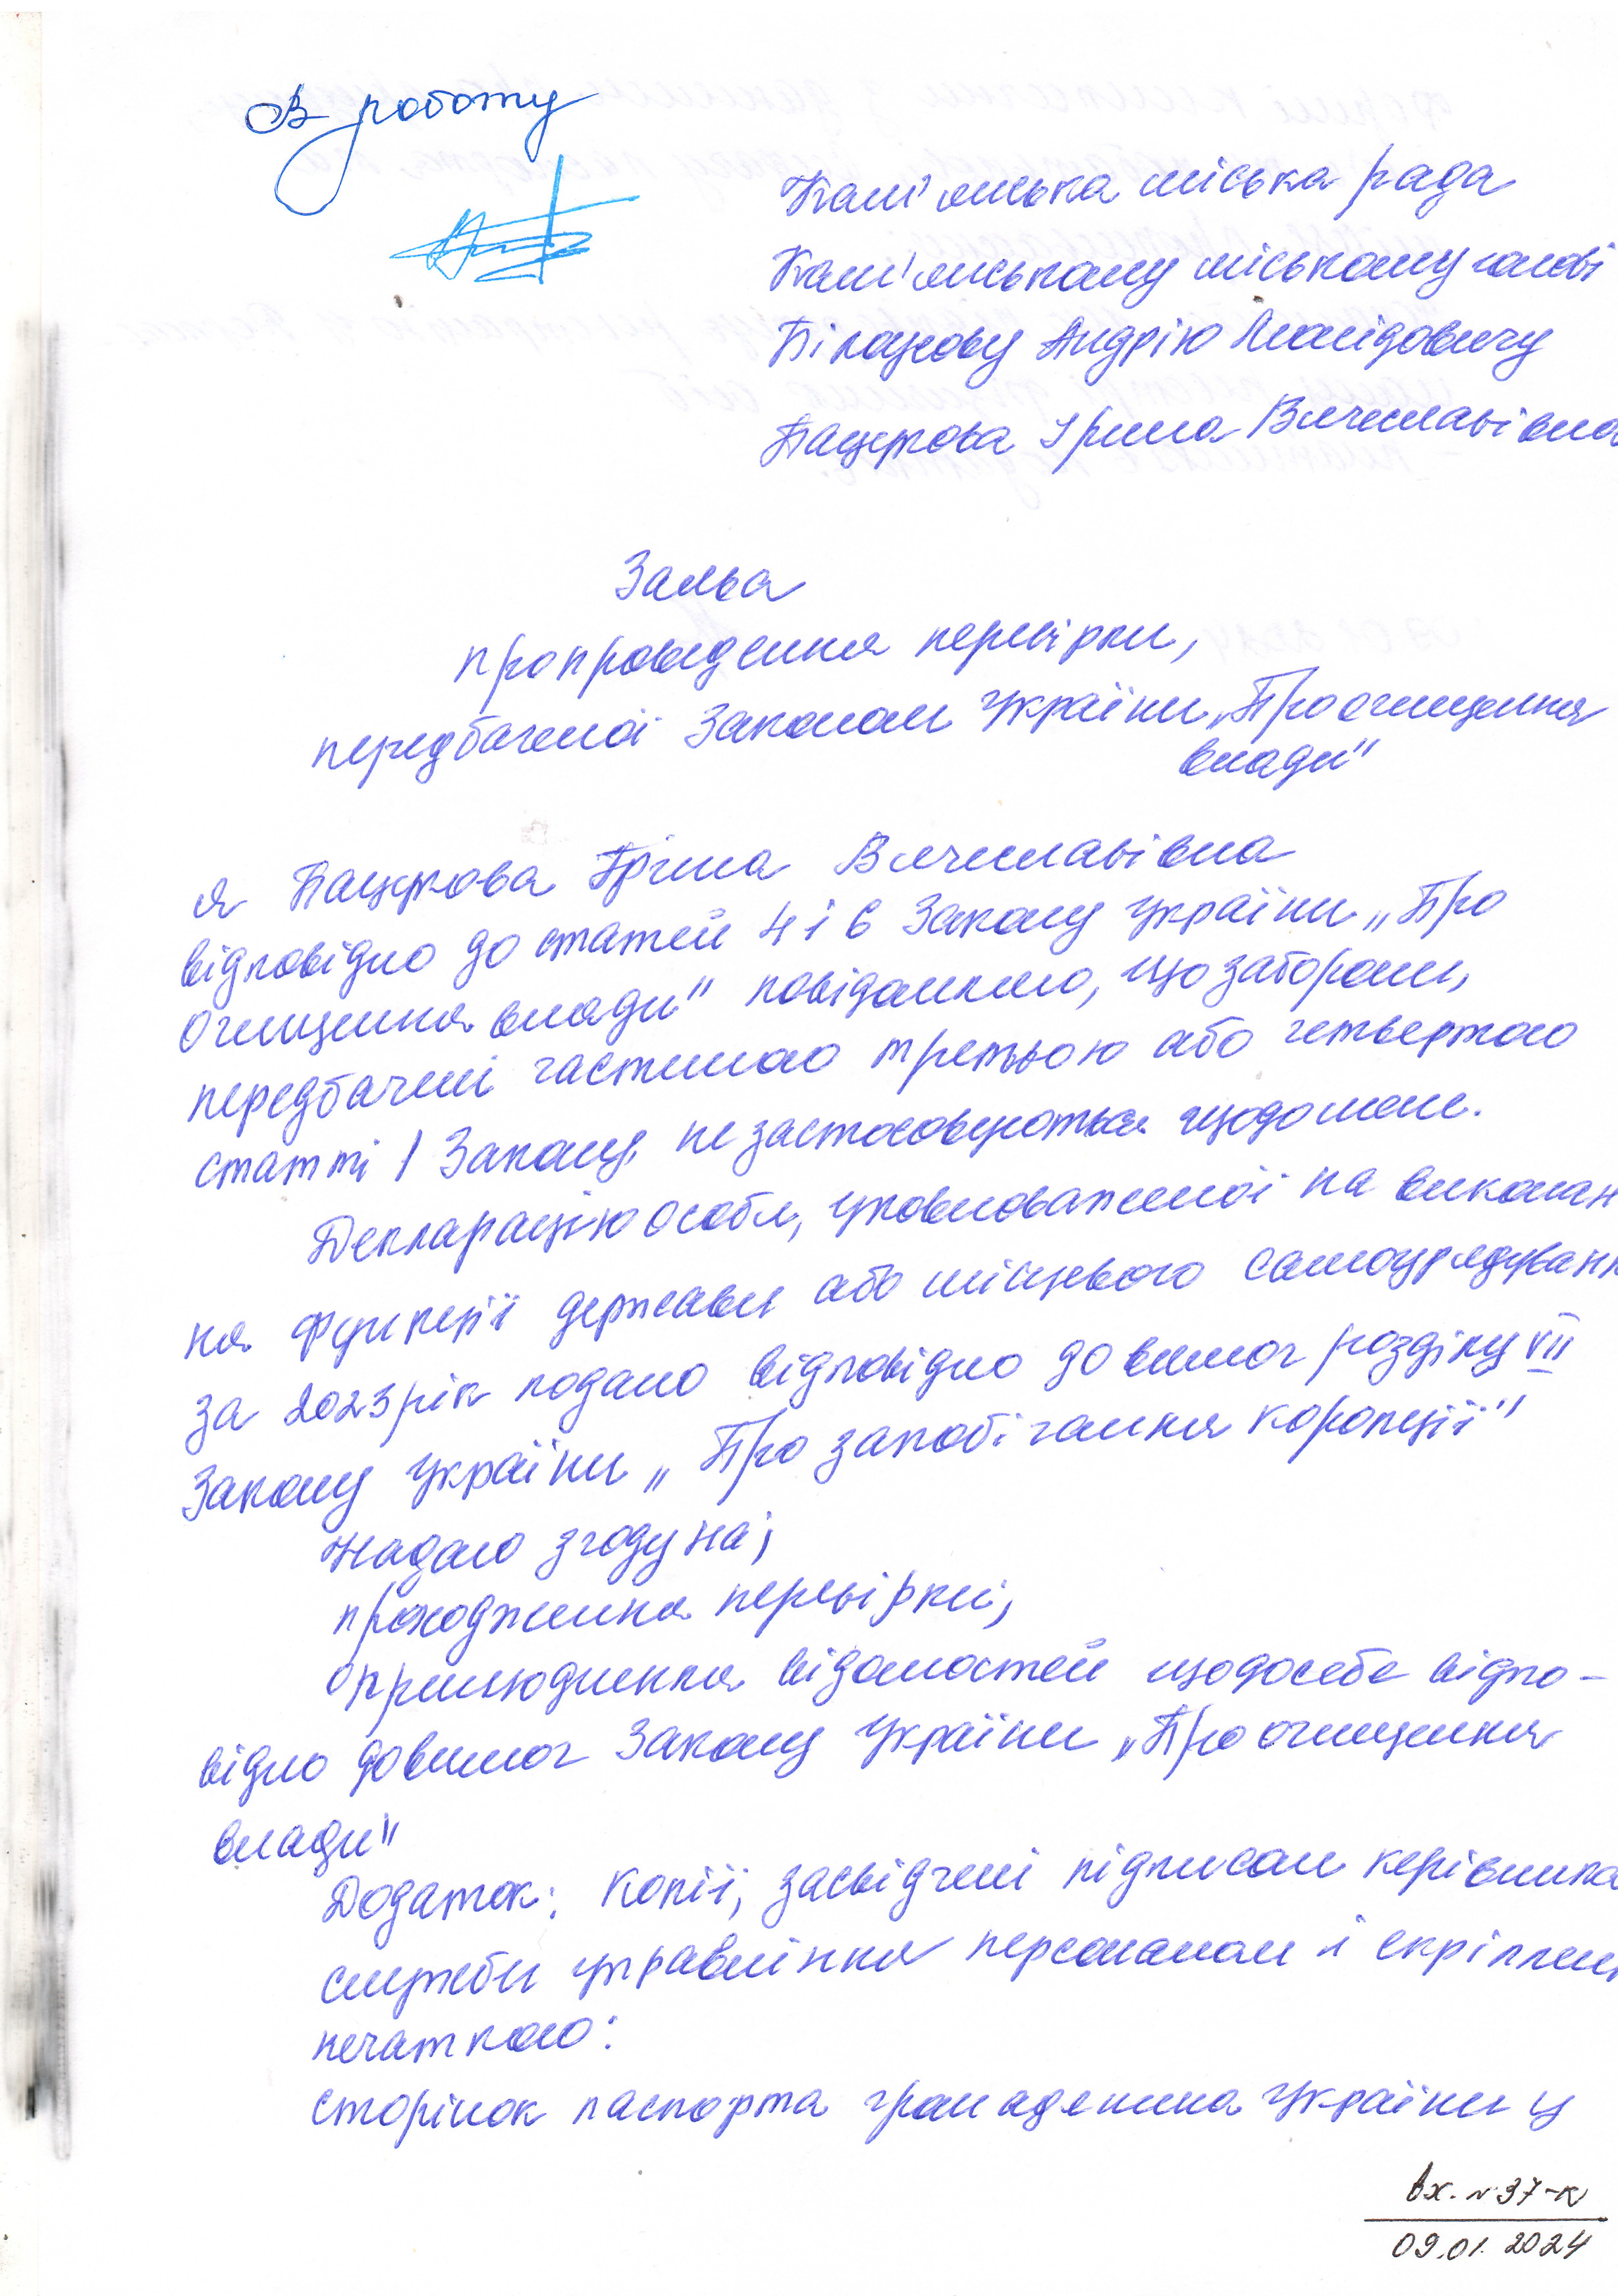 В роботу
Кам'янська міська рада
Кам'янському міському голові
Білоусову Андрію Леонідовичу
Бацурова Ірина Вячеславівна
Заява
про проведення перевірки,
передбаченої Законом України „Про очищення
влади"
я Бацурова Ірина Вячеславівна
відповідно до статей 4 і 6 Закону України „Про
очищення влади" повідомляю, що заборони,
передбачені частиною третьою або четвертою
статті 1 Закону, не застосовуються щодо мене.
Декларацію особи, уповноваженої на виконан
ня функції держави або місцевого самоврядуванн
за 2023 рік подано відповідно до вимог розділу VII
Закону України „Про запобігання корупції"
Надаю згоду на;
проходження перевірки;
оприлюднення відомостей щодо себе відпо-
відно до вимог Закону України „Про очищення
влади"
Додаток: Копії, засвідчені підписом керівника
служби управління персоналом і скріплен
печаткою:
сторінок паспорта громадянина України у
вх. № 37-к
09.01.2024